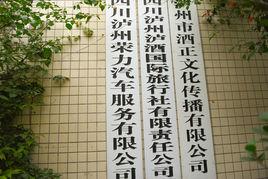 四川泸州荣力汽车服务有限公司
四川泸州泸酒国际旅行社有限责任公司
州市酒正文化传播有限公司